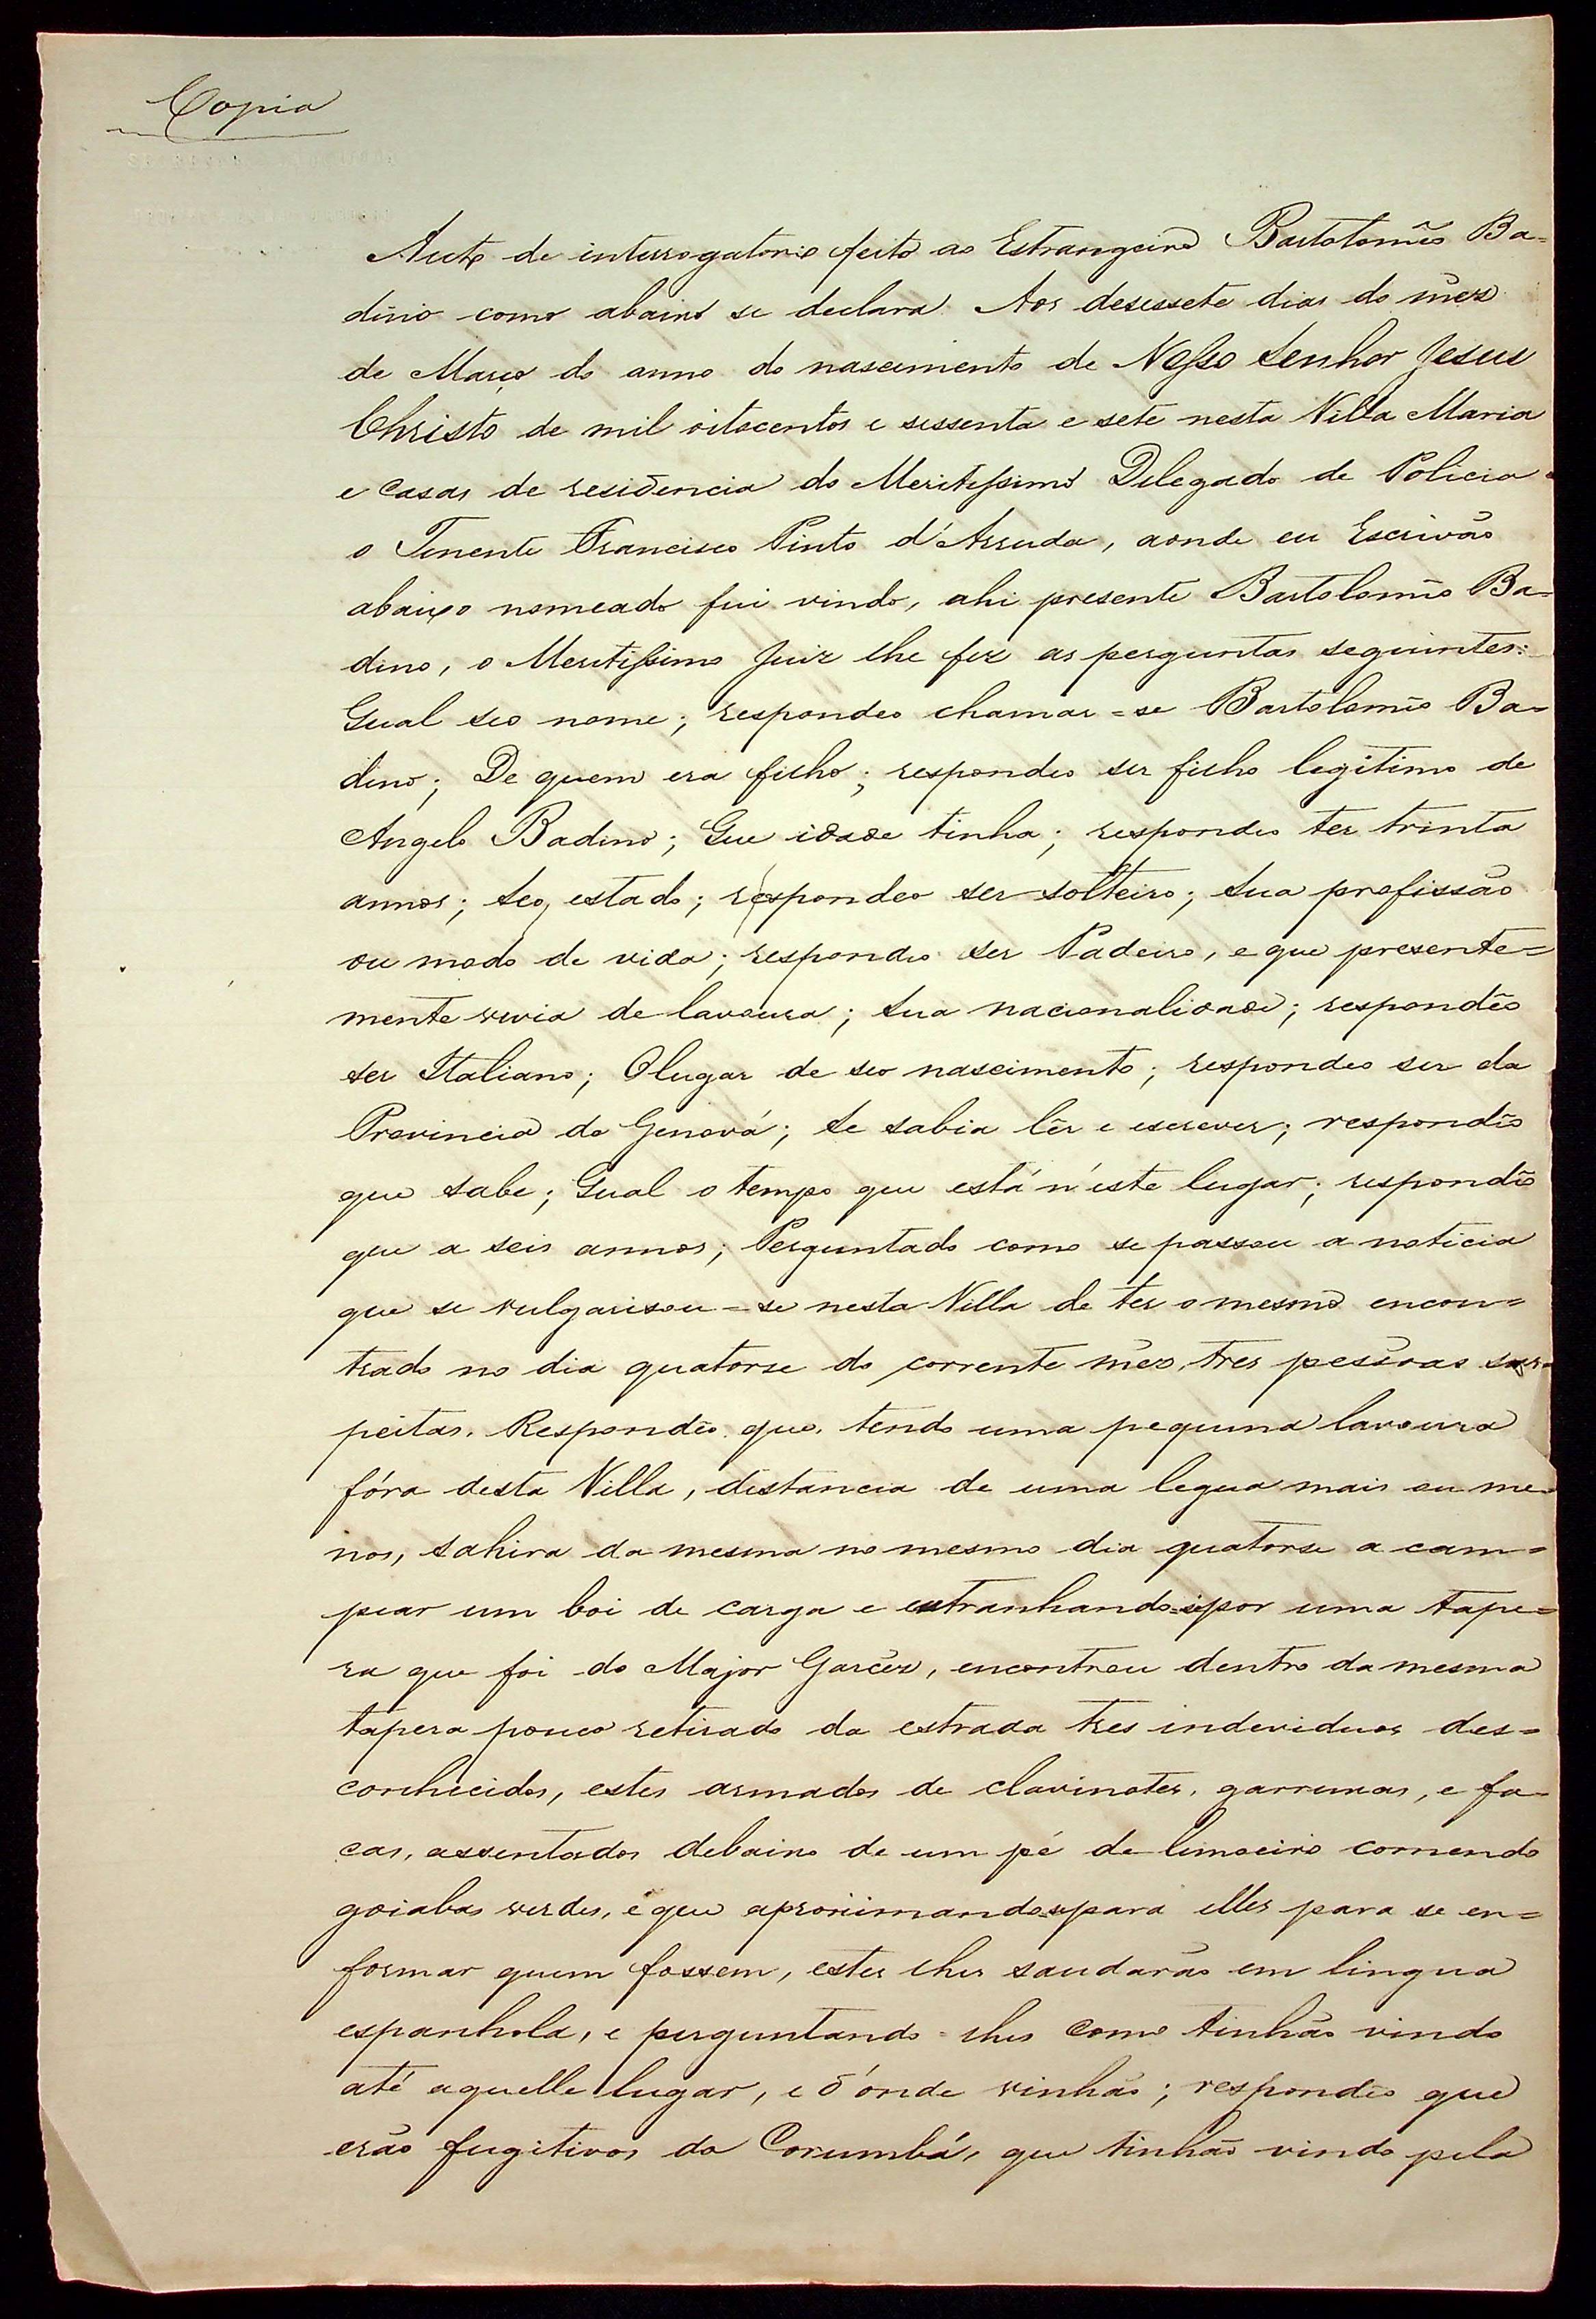 Copia
Auto de interrogatorio feito ao Estrangeiro Bartolomêo Ba=
dino como abaixo se declara. Aos desessete dias do mêz
de Março do anno do nascimento de Nosso Senhor Jesus
Christo de mil oitocentos e sessenta e sete nesta Villa Maria
e casas de residencia do Meritissimo Delegado de Policia
o Tenente Francisco Pinto d'Arruda, aonde eu Escrivão
abaixo nomeado fui vindo, ahi presente Bartolomêo Ba=
dino, o Meritissimo Juiz lhe fez as perguntas seguintes:
Qual seo nome; respondeo chamar=se Bartolomêo Ba=
dino; De quem era filho; respondeo ser filho legitimo de
Angelo Badino; Que idade tinha; respondeo ter trinta
annos; Seo estado; respondeo ser solteiro; Sua profissão
ou modo de vida; respondeo ser Padeiro, e que presente=
mente vivia de lavoura; Sua nacionalidade; respondêo
ser Italiano; O lugar de seo nascimento; respondeo ser da
Provincia de Genová; Se sabia lêr e escrever; respondêo
que sabe; Qual o tempo que está n'este lugar; respondêo
que a seis annos; Perguntado como se passou a noticia
que se vulgarisou=se nesta Villa de ter o mesmo encon=
trado no dia quatorse do corrente mêz, tres pessoas sus=
peitas. Respondêo que, tendo uma pequena lavoura
fóra desta Villa, distancia de uma legua mais ou me=
nos, sahira da mesma no mesmo dia quatorse a cam=
pear um boi de carga e entranhando=se por uma tape=
ra que foi do Major Garcêz, encontrou dentro da mesma
tapera pouco retirado da estrada tres individuos des=
conhecidos, estes armados de clavinotes, garrunas, e fa=
cas, assentados debaixo de um pé de limoeiro comendo
goiabas verdes, e que aproximando=se para elles para se en=
formar quem fossem, estes lhes saudarão em lingua
espanhola, e perguntando=lhes como tinhão vindo
até aquelle lugar, e d'onde vinhão; respondêo que
erão fugitivos do Corumbá, que tinhão vindo pela